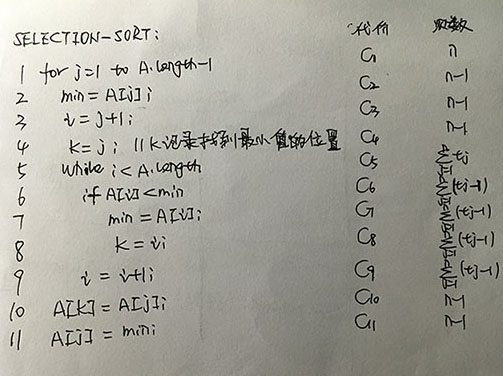 SELECTION-SORT: 代价 次数
1 for j=1 to A.length-1 C1 n
2 min = A[j]; C2 n-1
3 i = j+1; C3 n-1
4 k=j; //k记录找到最小值的位置 C4 n-1
5 while i < A.length C5 tj
6 if A[i] < min C6 (tj-1)
7 min = A[i]; C7 (tj-1)
8 k = i; C8 (tj-1)
9 i = i+1; C9 (tj-1)
10 A[k] = A[j]; C10 n-1
11 A[j] = min; C11 n-1